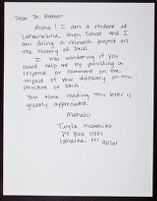 Dear Dr. Watson
Aloha! I am a student at
Lahainaluna High School and I
am doing a research project on
the history of DNA.
I was wondering if you
could help me by providing a
response or comment on the
impact of your discovery on the
structure of DNA.
Your time reading this letter is
greatly appreciated.
Mahalo
PO Box
Lahaina, HI
96761